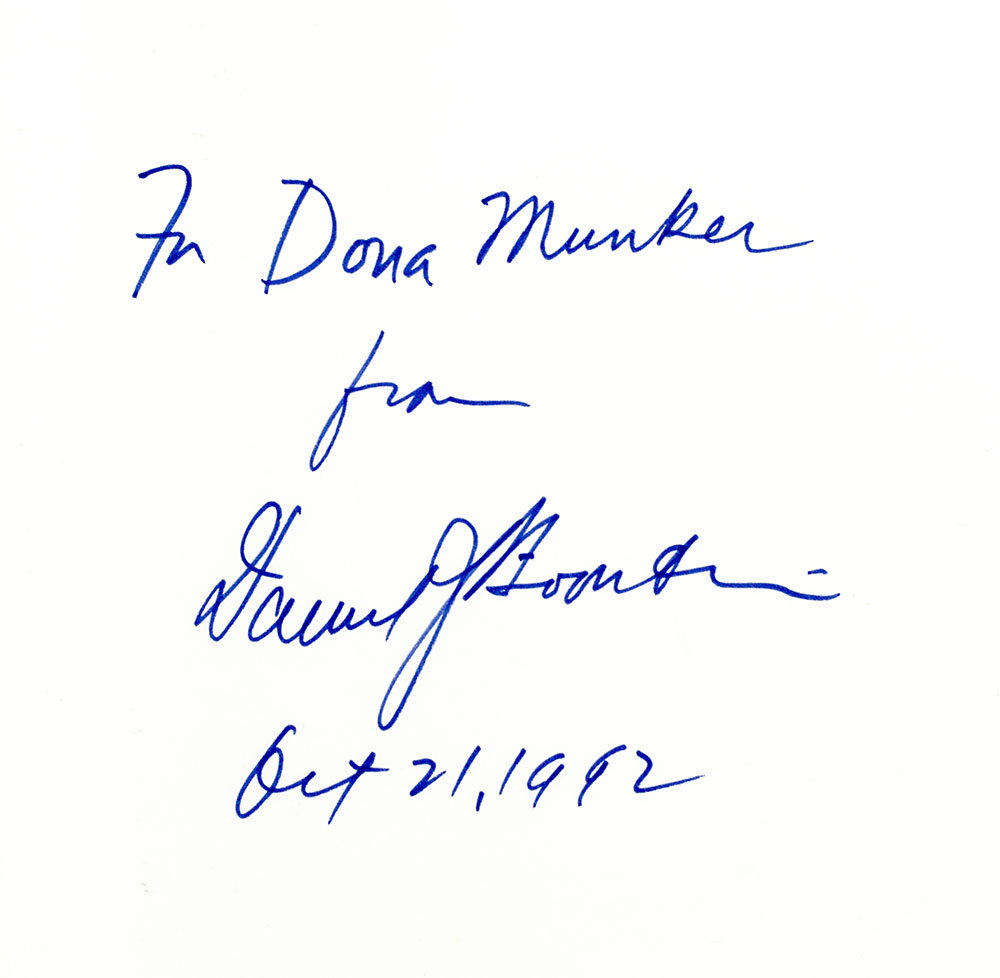 For Dona Munker
from
Daniel J Boorstin
Oct 21, 1992